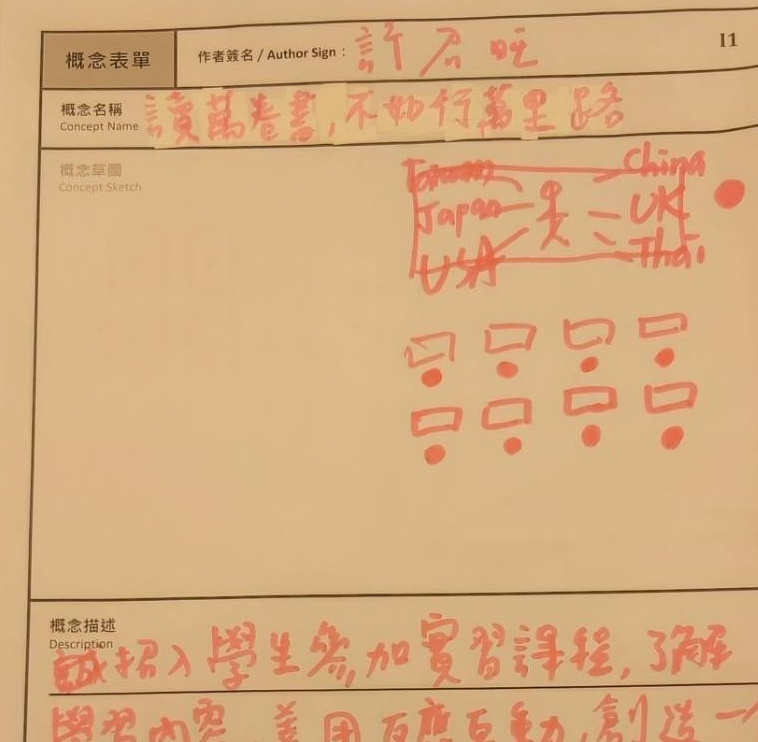 概念表單 作者簽名 / Author Sign： 許 旺 I1
概念名稱 讀萬卷書,不如行萬里路
Concept Name
概念草圖
Concept Sketch
China
Japan UK
USA Thai
概念描述
Description
招入學生參加實習課程,了解
學習內容 並因 互動,創造一